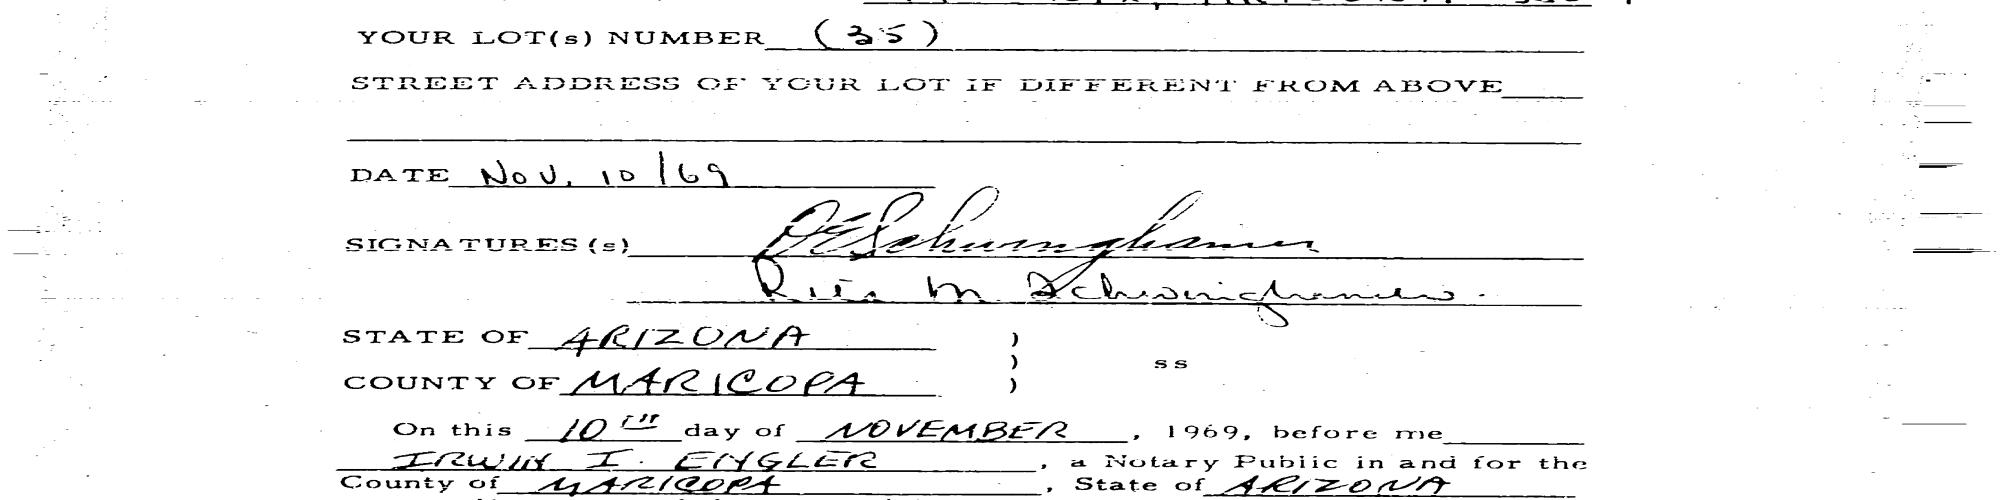 YOUR LOT(s) NUMBER (35)
STREET ADDRESS OF YOUR LOT IF DIFFERENT FROM ABOVE
DATE Nov. 10/69
SIGNATURES (s) D E Schwinghamer
Rita M Schwinghamer.
STATE OF ARIZONA )
) ss
COUNTY OF MARICOPA )
On this 10TH day of NOVEMBER, 1969, before me
IRWIN I. ENGLER, a Notary Public in and for the
County of MARICOPA, State of ARIZONA